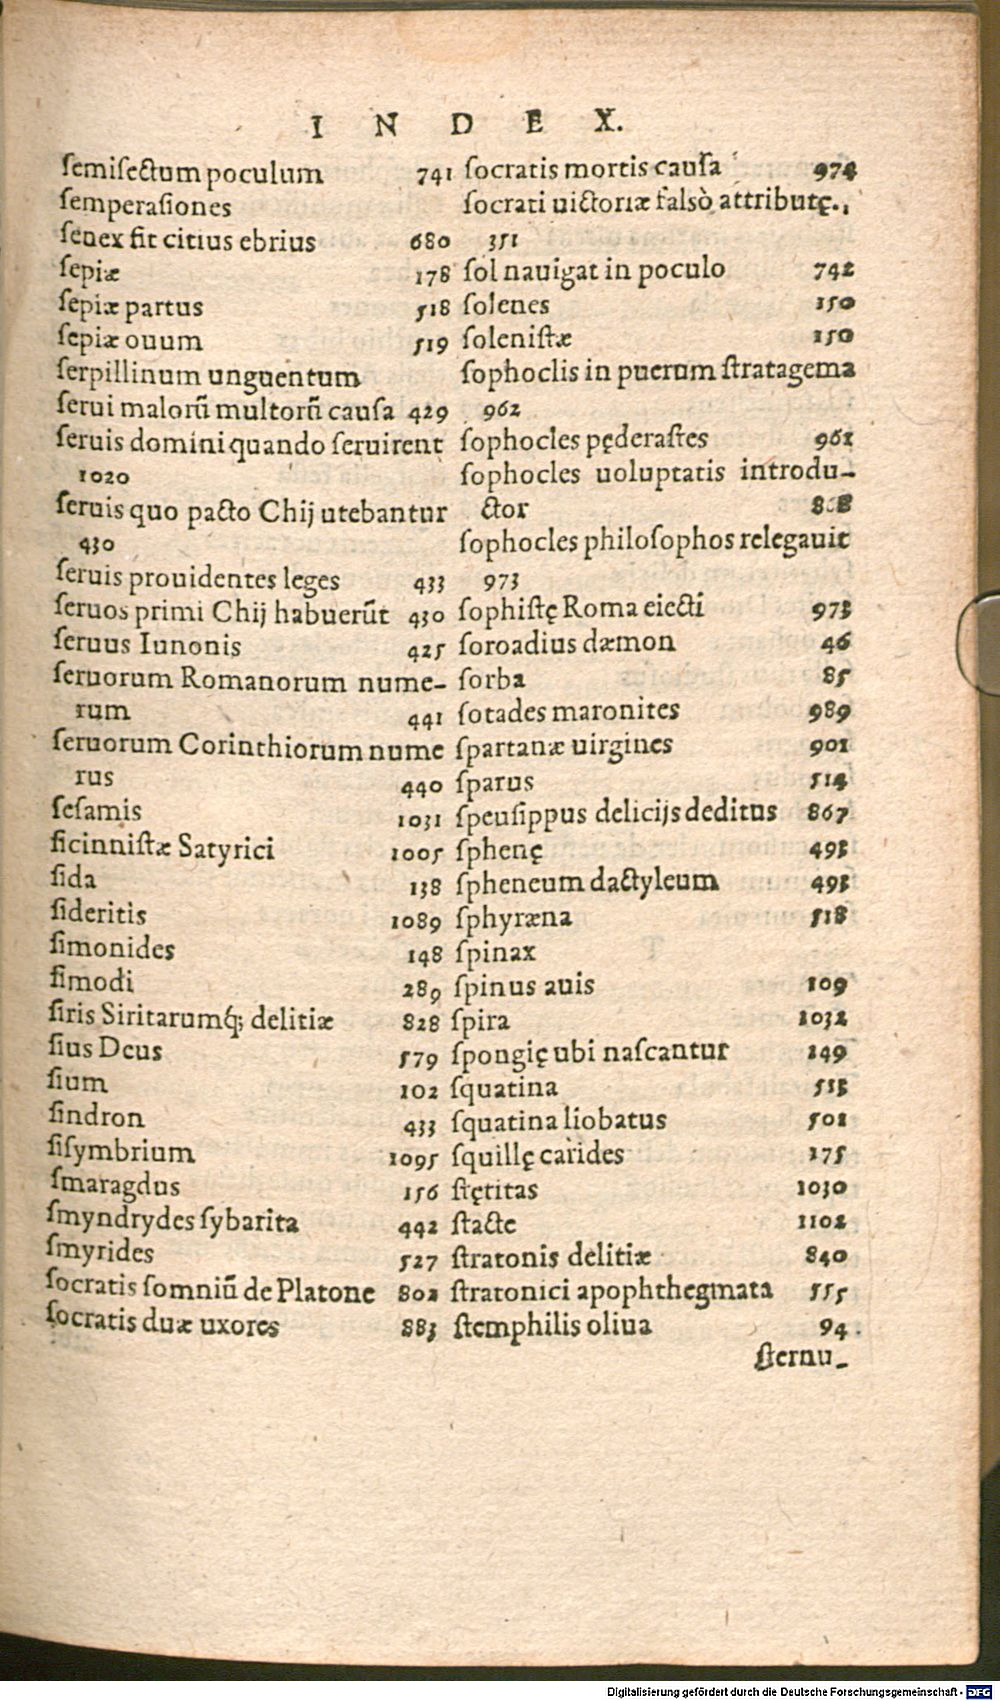 INDEX.
ſemiſectum poculum 741
ſemperaſiones
ſenex fit citius ebrius 680
ſepiæ 178
ſepiæ partus 518
ſepiæ ouum 519
ſerpillinum unguentum
ſerui malorũ multorũ cauſa 429
ſeruis domini quando ſeruirent
1020
ſeruis quo pacto Chij utebantur
430
ſeruis prouidentes leges 433
ſeruos primi Chij habuerũt 430
ſeruus Iunonis 425
ſeruorum Romanorum nume-
rum 441
ſeruorum Corinthiorum nume
rus 440
ſeſamis 1031
ſicinniſtæ Satyrici 1005
ſida 138
ſideritis 1089
ſimonides 148
ſimodi 289
ſiris Siritarumq́; delitiæ 828
ſius Deus 579
ſium 102
ſindron 433
ſiſymbrium 1095
ſmaragdus 156
ſmyndrydes ſybarita 442
ſmyrides 527
ſocratis ſomniũ de Platone 802
ſocratis duæ uxores 883
ſocratis mortis cauſa 974
ſocrati uictoriæ falsò attributę.
351
ſol nauigat in poculo 742
ſolenes 150
ſoleniſtæ 150
ſophoclis in puerum ſtratagema
962
ſophocles pęderaſtes 961
ſophocles uoluptatis introdu-
ctor
ſophocles philoſophos relegauit
973
ſophiſtę Roma eiecti 973
ſoroadius dæmon 46
ſorba 85
ſotades maronites 989
ſpartanæ uirgines 901
ſparus 514
ſpeuſippus delicijs deditus 867
ſphenę 493
ſpheneum dactyleum 493
ſphyræna 518
ſpinax
ſpinus auis 109
ſpira 1032
ſpongię ubi naſcantur 149
ſquatina 513
ſquatina liobatus 501
ſquillę carides 175
ſtętitas 1030
ſtacte 1102
ſtratonis delitiæ 840
ſtratonici apophthegmata 555
ſtemphilis oliua 94
ſternu-
Digitalisierung gefördert durch die Deutsche Forschungsgemeinschaft - DFG